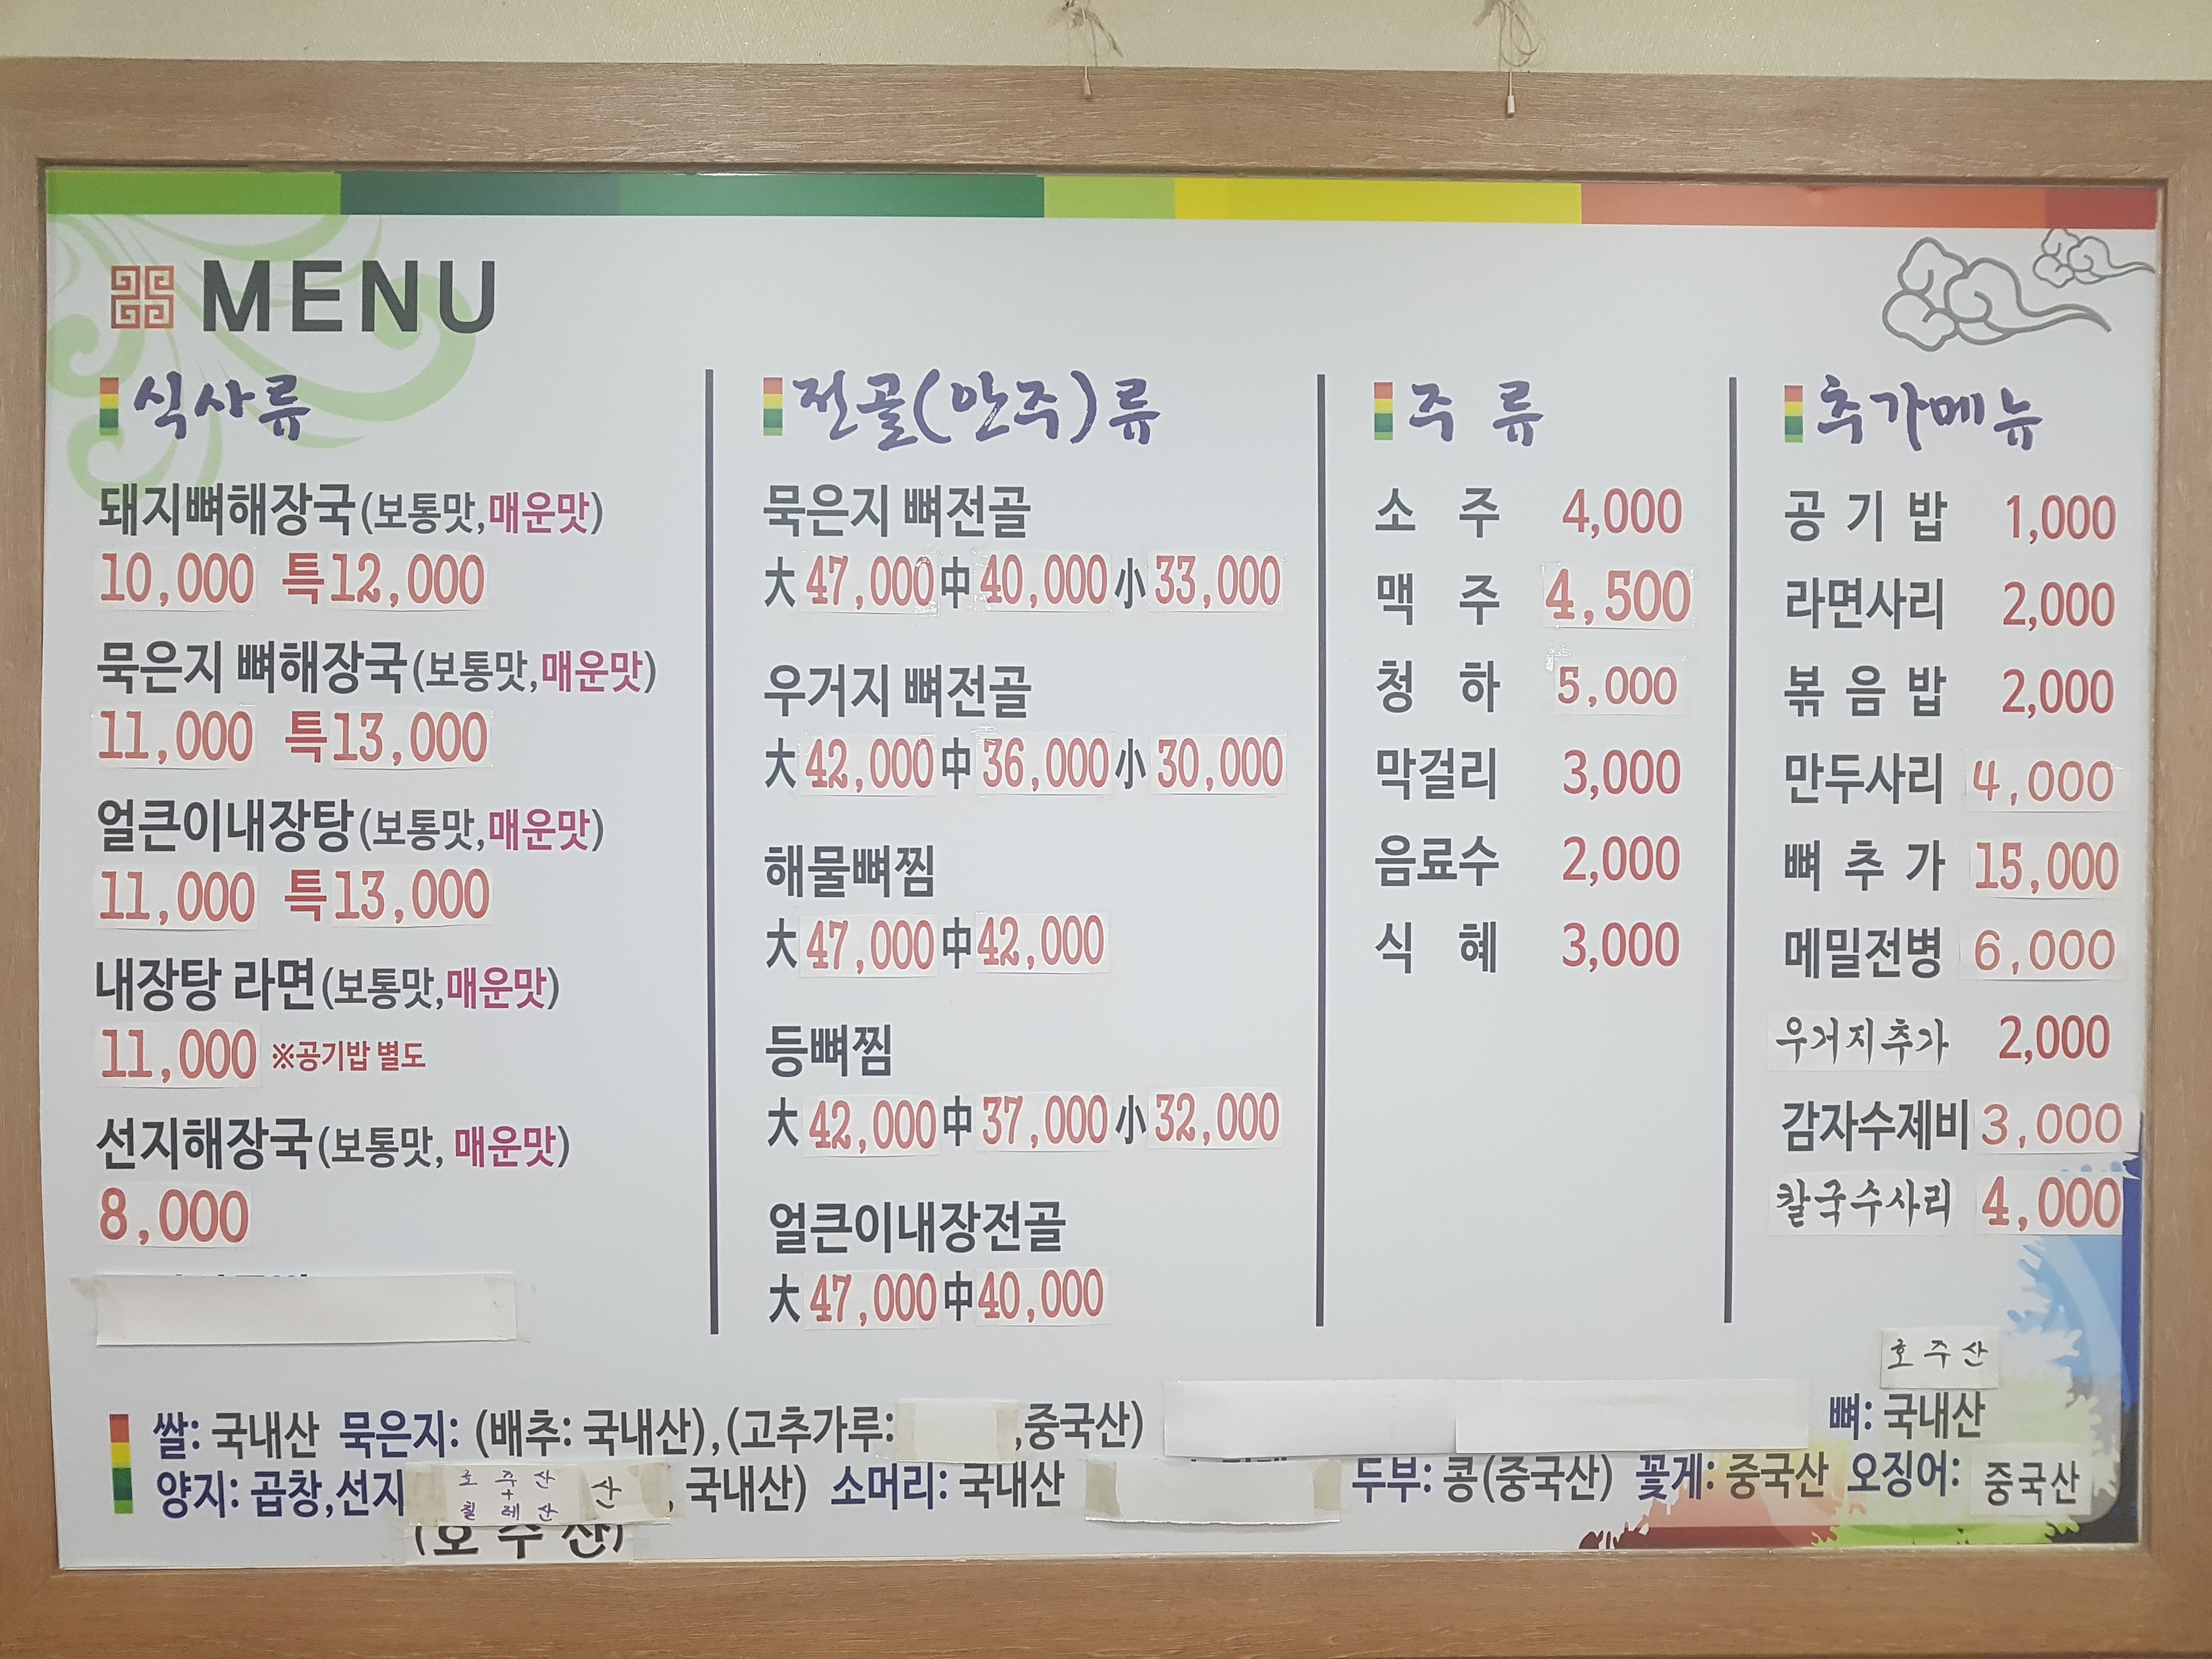 MENU
식사류
돼지뼈해장국(보통맛,매운맛)
10,000 특12,000
묵은지 뼈해장국(보통맛,매운맛)
11,000 특13,000
얼큰이내장탕(보통맛,매운맛)
11,000 특13,000
내장탕 라면(보통맛,매운맛)
11,000 ※공기밥 별도
선지해장국(보통맛, 매운맛)
8,000
전골(안주)류
묵은지 뼈전골
大 47,000 中 40,000 小 33,000
우거지 뼈전골
大 42,000 中 36,000 小 30,000
해물뼈찜
大 47,000 中 42,000
등뼈찜
大 42,000 中 37,000 小 32,000
얼큰이내장전골
大 47,000 中 40,000
주 류
소 주 4,000
맥 주 4,500
청 하 5,000
막걸리 3,000
음료수 2,000
식 혜 3,000
추가메뉴
공 기 밥 1,000
라면사리 2,000
볶 음 밥 2,000
만두사리 4,000
뼈 추 가 15,000
메밀전병 6,000
우거지추가 2,000
감자수제비 3,000
칼국수사리 4,000
호주산
쌀: 국내산 묵은지: (배추: 국내산),(고추가루: ,중국산) 뼈: 국내산
양지: 곱창,선지 호주산 + 칠레산 산 , 국내산) 소머리: 국내산 두부: 콩(중국산) 꽃게: 중국산 오징어: 중국산
(호주산)